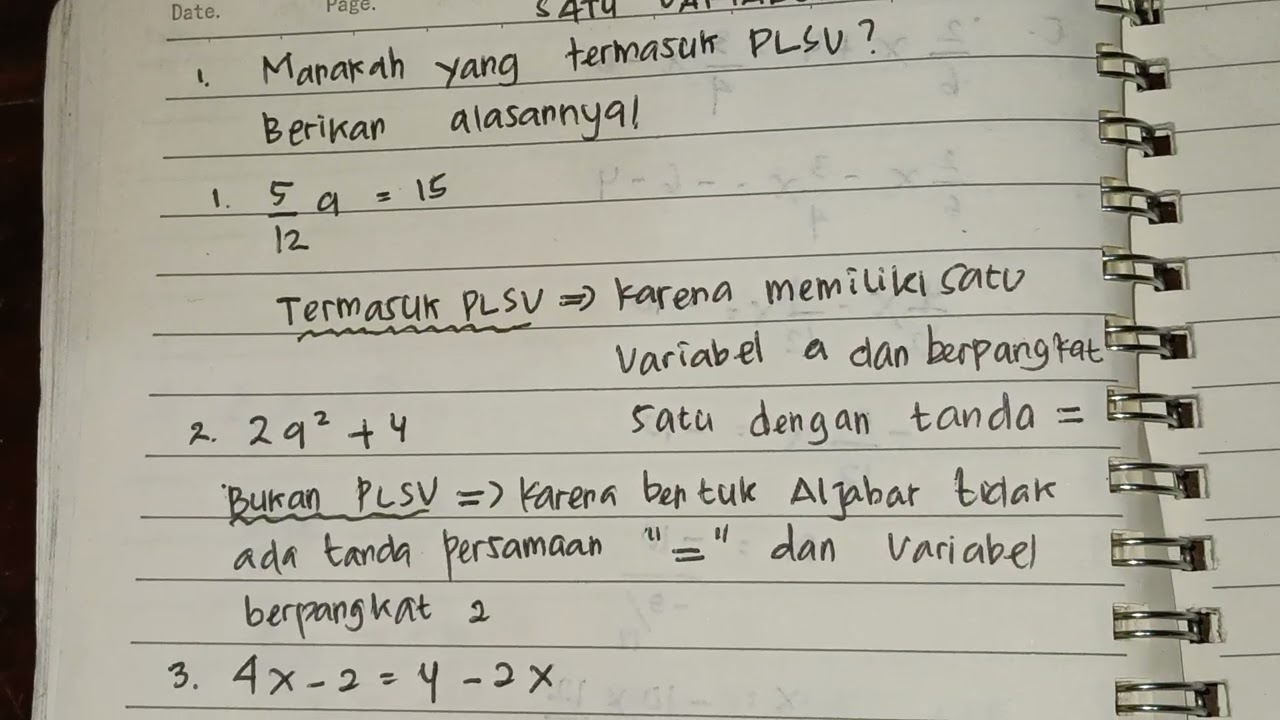 Date. Page.
SATU
1. Manakah yang termasuk PLSV?
Berikan alasannya!
1. 5/12 a = 15
Termasuk PLSV => karena memiliki satu
variabel a dan berpangkat
satu dengan tanda =
2. 2a² + 4
Bukan PLSV => karena bentuk Aljabar tidak
ada tanda persamaan "=" dan variabel
berpangkat 2
3. 4x - 2 = 4 - 2x